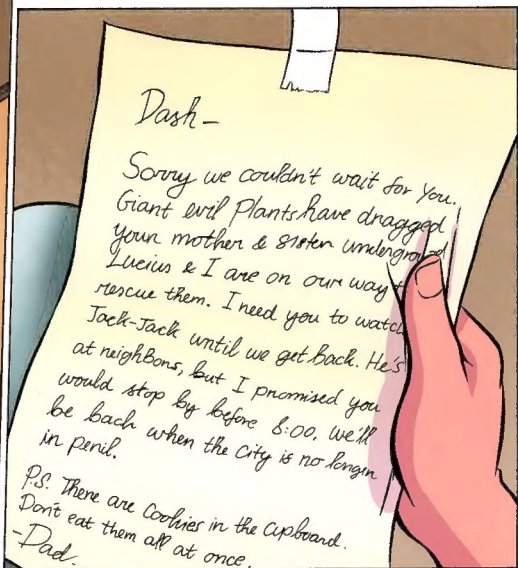 Dash-
Sorry we couldn't wait for you.
Giant evil Plants have dragged
your mother & sister underground
Lucius & I are on our way
rescue them. I need you to watch
Jack-Jack until we get back. He's
at neighbors, but I promised you
would stop by before 8:00. We'll
be back when the city is no longer
in peril.
P.S. There are Cookies in the cupboard.
Don't eat them all at once.
-Dad.